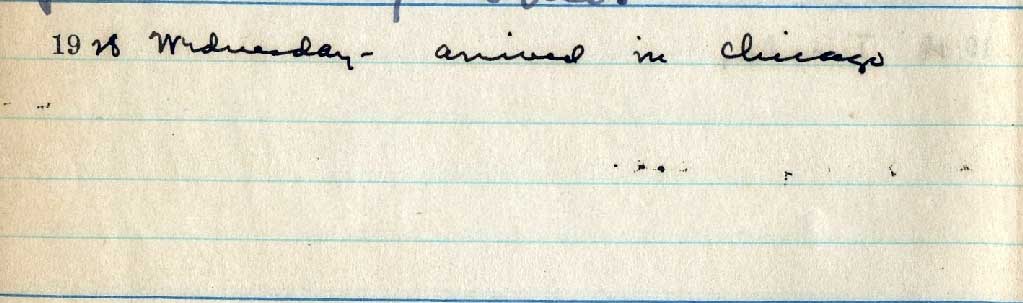 1928 Wednesday - arrived in Chicago